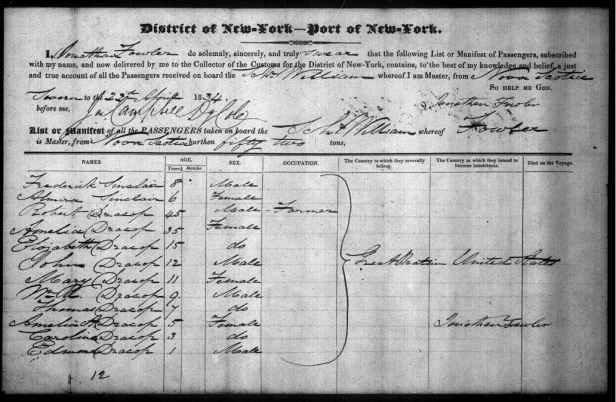 District of New-York—Port of New-York.
I, Jonathan Fowler do solemnly, sincerely, and truly swear that the following List or Manifest of Passengers, subscribed
with my name, and now delivered by me to the Collector of the Customs for the District of New-York, contains, to the best of my knowledge and belief, a just
and true account of all the Passengers received on board the William whereof I am Master, from Nova Scotia
So help me God.
Sworn to the 22d April 1834
before me, Jas Campbell Jonathan Fowler
List or Manifest of all the PASSENGERS taken on board the Schr William whereof Fowler
is Master, from Nova Scotia burthen fifty two tons,
NAMES. AGE. SEX. OCCUPATION. The Country to which they severally belong. The Country in which they intend to become inhabitants. Died on the Voyage.
Years Months.
Frederick Sinclair 8 Male
Almira Sinclair 6 Female
Robert Dracop 45 Male Farmer
Amelia Dracop 35 Female
Elizabeth Dracop 15 do
John Dracop 12 Male Great Britain United States
Mary Dracop 11 Female
Wm Dracop 9 Male
Thomas Dracop 7 do
Amelia Dracop 5 Female Jonathan Fowler
Caroline Dracop 3 do
Edmund Dracop 1 Male
12